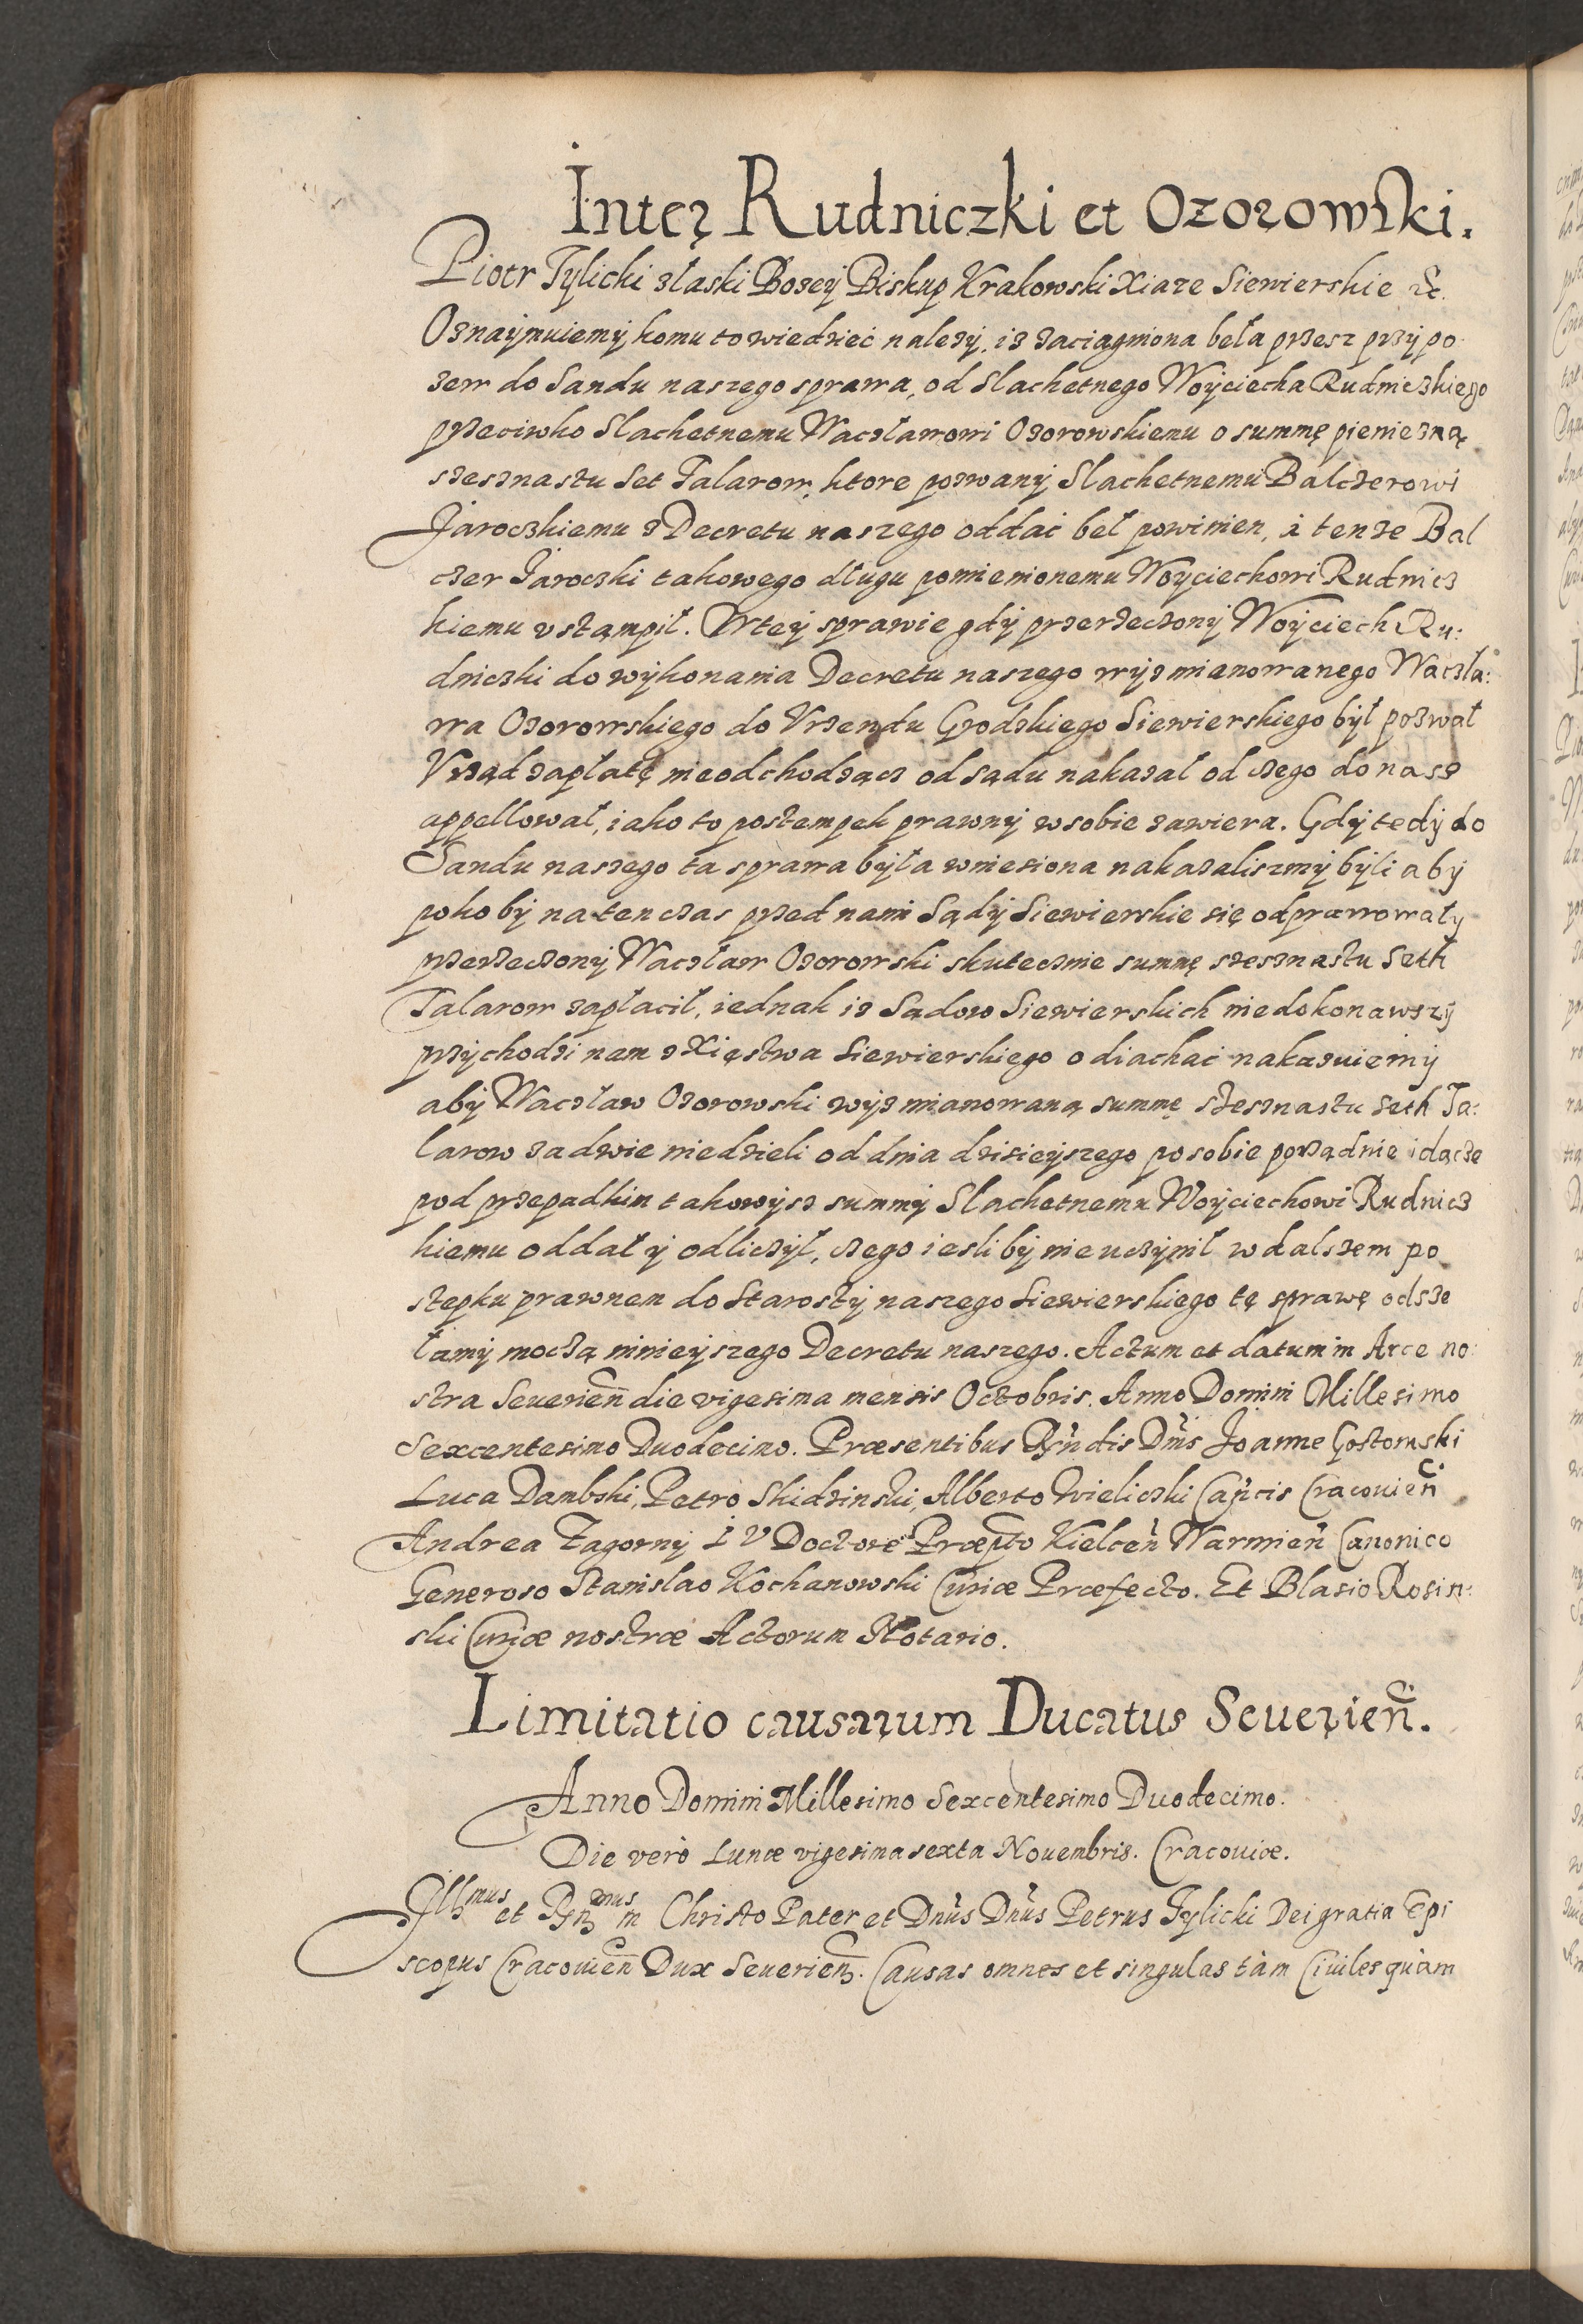 Inter Rudniczki et Ozorowski.
Piotr Tylicki złaski Bozey Biskup Krakowski Xiaze Siewierskie &c.
Oznaÿmuiemÿ komu to wiedzieć należÿ, iż zaciągniona beła przesz przÿpo
zem do Sandu naszego sprawa, od Slachetnego Woÿciecha Rudniczkiego
przeciwko Slachetnemu Waczławowi Ozorowskiemu o summę pieniezną
szesznastu Set Talarow, ktore pozwanÿ Slachetnemu Balczerowi
Jaroczkiemu z Decretu naszego oddać beł powinien, à tenze Bal
czer Jaroczki takowego długu pomienionemu Woÿciechowi Rudnicz
kiemu vstąmpił. Wteÿ sprawie gdÿ przerzeczonÿ Woÿciech Ru:
dniczki do wÿkonania Decretu naszego wÿz mianowanego Waczła:
wa Ozorowskiego do Vrzendu Grodzkiego Siewierskiego bÿł pozwał
Vrząd zapłatę nieodchodzącz od sądu nakazał od czego do nasz
appellował, iako to postempek prawnÿ wsobie zawiera. Gdÿ tedÿ do
Sandu naszego ta sprawa bÿła wniesiona nakazaliszmÿ bÿli abÿ
poko bÿ na ten czas przed nami Sądÿ Siewierskie się odprawowałÿ
przerzeczonÿ Waczław Ozorowski skutecznie summę szesznastu Seth
Talarow zapłacił, iednak iz Sądow Siewierskich niedokonawszÿ
przÿchodzi nam z Xięstwa Siewierskiego odiachać nakazuiemÿ
abÿ Waczław Ozorowski wÿz mianowaną summę szesznastu Seth Ta:
larow za dwie niedzieli od dnia dzisieÿszego po sobie porządnie idącze
pod przepadkim takowÿsz summÿ Slachetnemu Woÿciechowi Rudnicz
kiemu oddał ÿ odliczÿł, czego iesli bÿ nie uczÿnił w dalszem po
stępku prawnem do Starostÿ naszego Siewierskiego tę sprawę odsze
łamÿ moczą ninieÿszego Decretu naszego. Actum et datum in Arce no:
stra Seuerien̄ die vigesima mensis Octobris. Anno Domini Millesimo
Sexcentesimo Duodecimo. Præsentibus Rn̄dis Dn̄is Joanne Gostomski
Luca Dambski, Petro Skidzinski, Alberto Wieliczki Can̄cis Cracouien̄
Andrea Zagornÿ I V Doctore Præpto Kielcen̄ Warmien̄ Canonico
Generoso Stanislao Kochanowski Curiæ Præfecto. Et Blasio Rosin:
ski Curiæ nostræ Actorum Notario.
Limitatio causarum Ducatus Seuerien̄.
Anno Domini Millesimo Sexcentesimo Duodecimo.
Die verò Lunæ vigesima sexta Nouembris. Cracouiæ.
Illmus et Rn̄dmus in Christo Pater et Dn̄us Dn̄us Petrus Tÿlicki Dei gratia Epi
scopus Cracouien̄ Dux Seuerien̄. Causas omnes et singulas tàm Ciuiles quàm